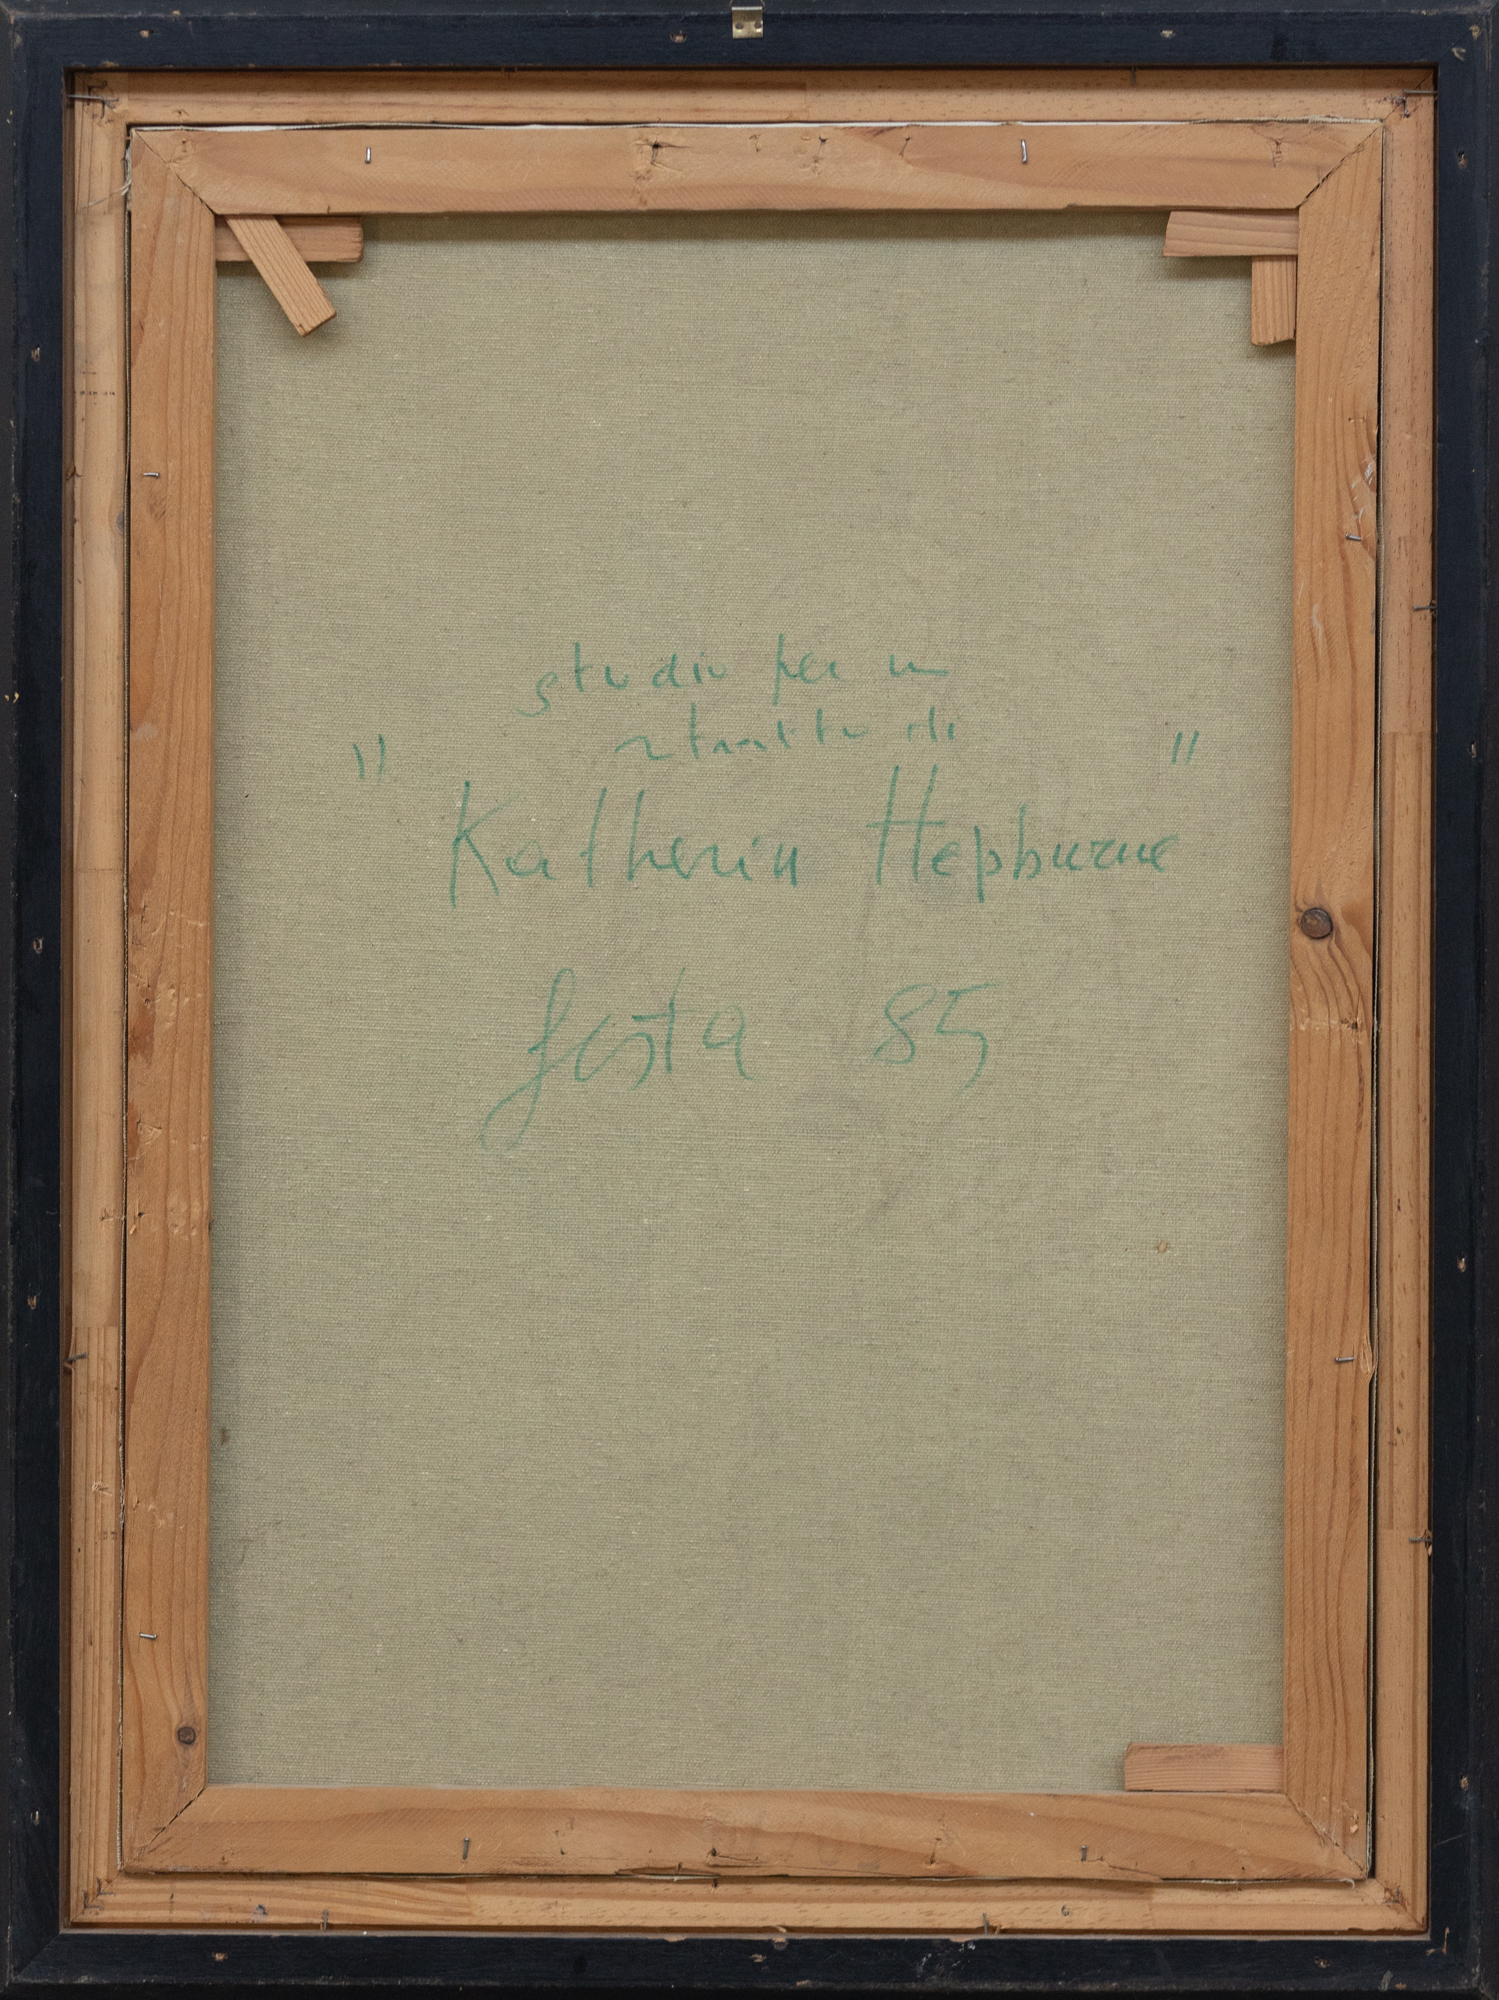 studio per un
" ritratto di "
Katherin Hepburne
festa 85